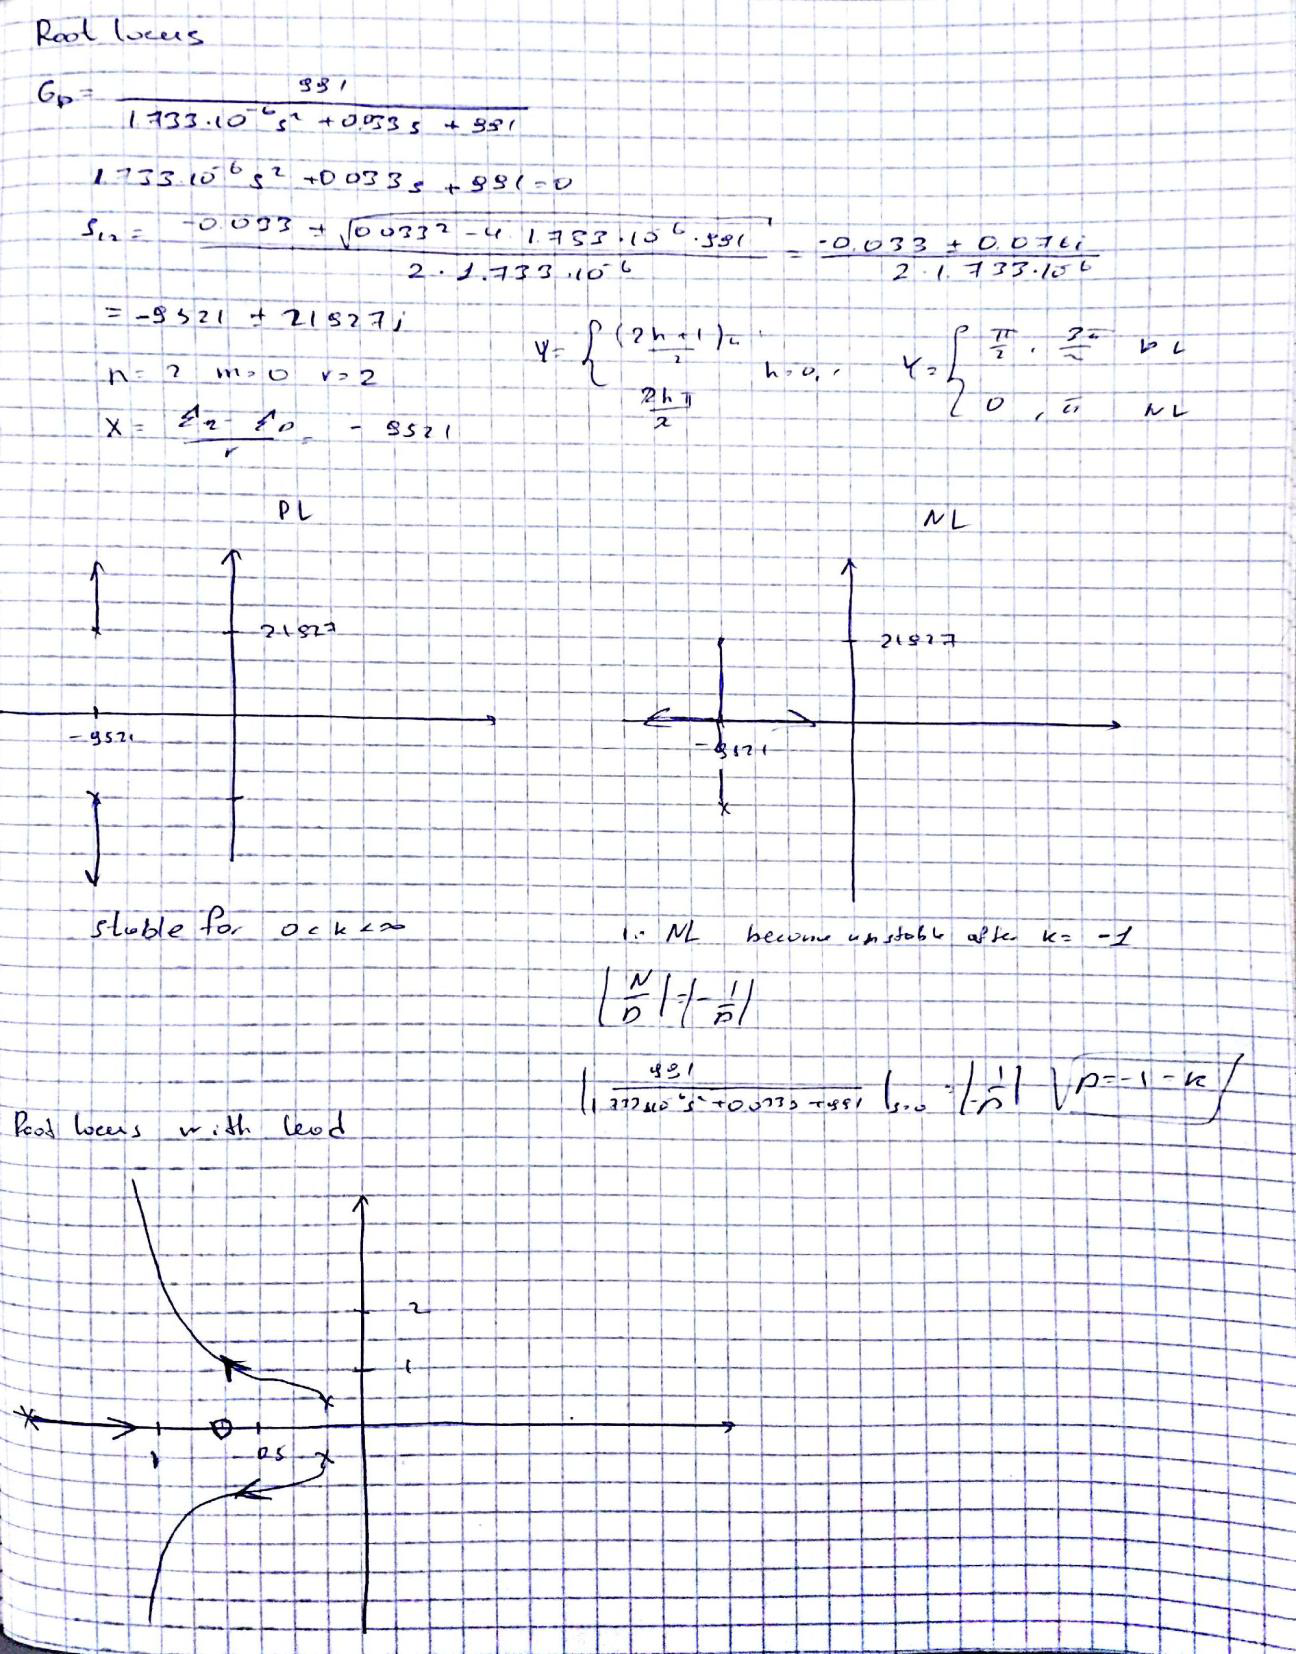 Root locus
Gp = 991 / (1.733·10^-6 s² + 0.033 s + 991)
1.733·10^-6 s² + 0.033 s + 991 = 0
S12 = (-0.033 ± √(0.033² - 4·1.733·10^-6·991)) / (2·1.733·10^-6) = (-0.033 ± 0.076i) / (2·1.733·10^-6)
= -9521 ± 21927i
n = 2 m = 0 r = 2
γ = { (2h+1)π / 2 , 2hπ / 2 h = 0, 1
γ = { π/2 , 3π/2 PL
0 , π NL
X = / r = -9521
PL
NL
21927
21927
-9521
-9521
stable for 0 < k < ∞
NL become unstable after k = -1
|N/D| = |-1/p|
|991 / (1.733·10^-6 s² + 0.033s + 991)| s=0 = |-1/p| p = -1 = k
Root locus with lead
2
1
1
0.5